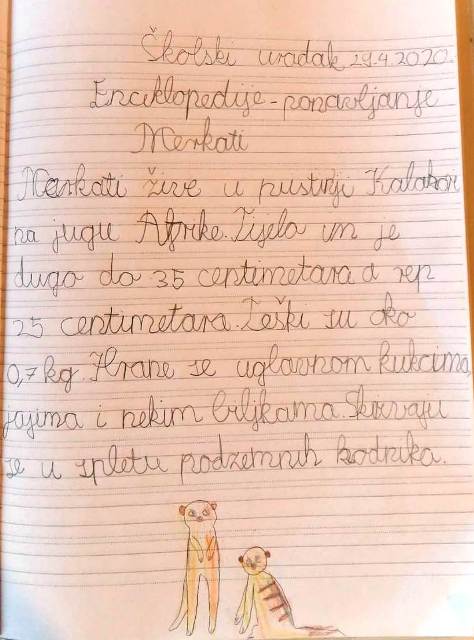 Školski uradak 29.4.2020.
Enciklopedije - ponavljanje
Merkati
Merkati žive u pustinji Kalahari
na jugu Afrike. Tijelo im je
dugo do 35 centimetara a rep
25 centimetara. Teški su oko
0,7 kg. Hrane se uglavnom kukcima,
jajima i nekim biljkama. Skrivaju
se u spletu podzemnih hodnika.